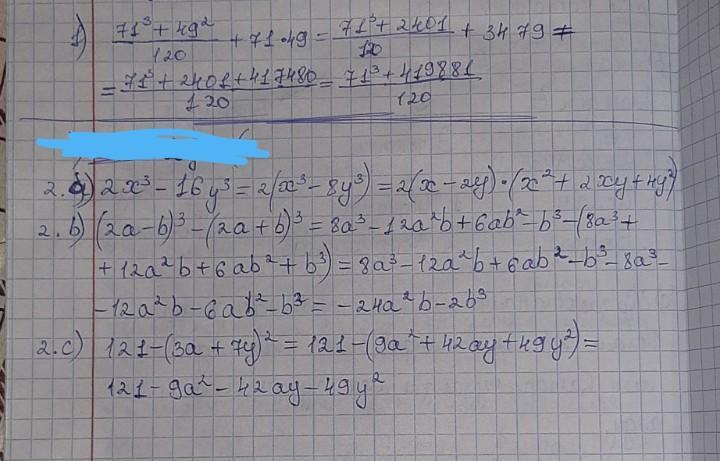 1) (71³ + 49²)/120 + 71·49 = (71³ + 2401)/120 + 3479 =
= (71³ + 2401 + 417480)/120 = (71³ + 419881)/120
2.a) 2x³ - 16y³ = 2(x³ - 8y³) = 2(x - 2y)·(x² + 2xy + 4y²)
2.b) (2a - b)³ - (2a + b)³ = 8a³ - 12a²b + 6ab² - b³ - (8a³ +
+ 12a²b + 6ab² + b³) = 8a³ - 12a²b + 6ab² - b³ - 8a³ -
- 12a²b - 6ab² - b³ = - 24a²b - 2b³
2.c) 121 - (3a + 7y)² = 121 - (9a² + 42ay + 49y²) =
121 - 9a² - 42ay - 49y²